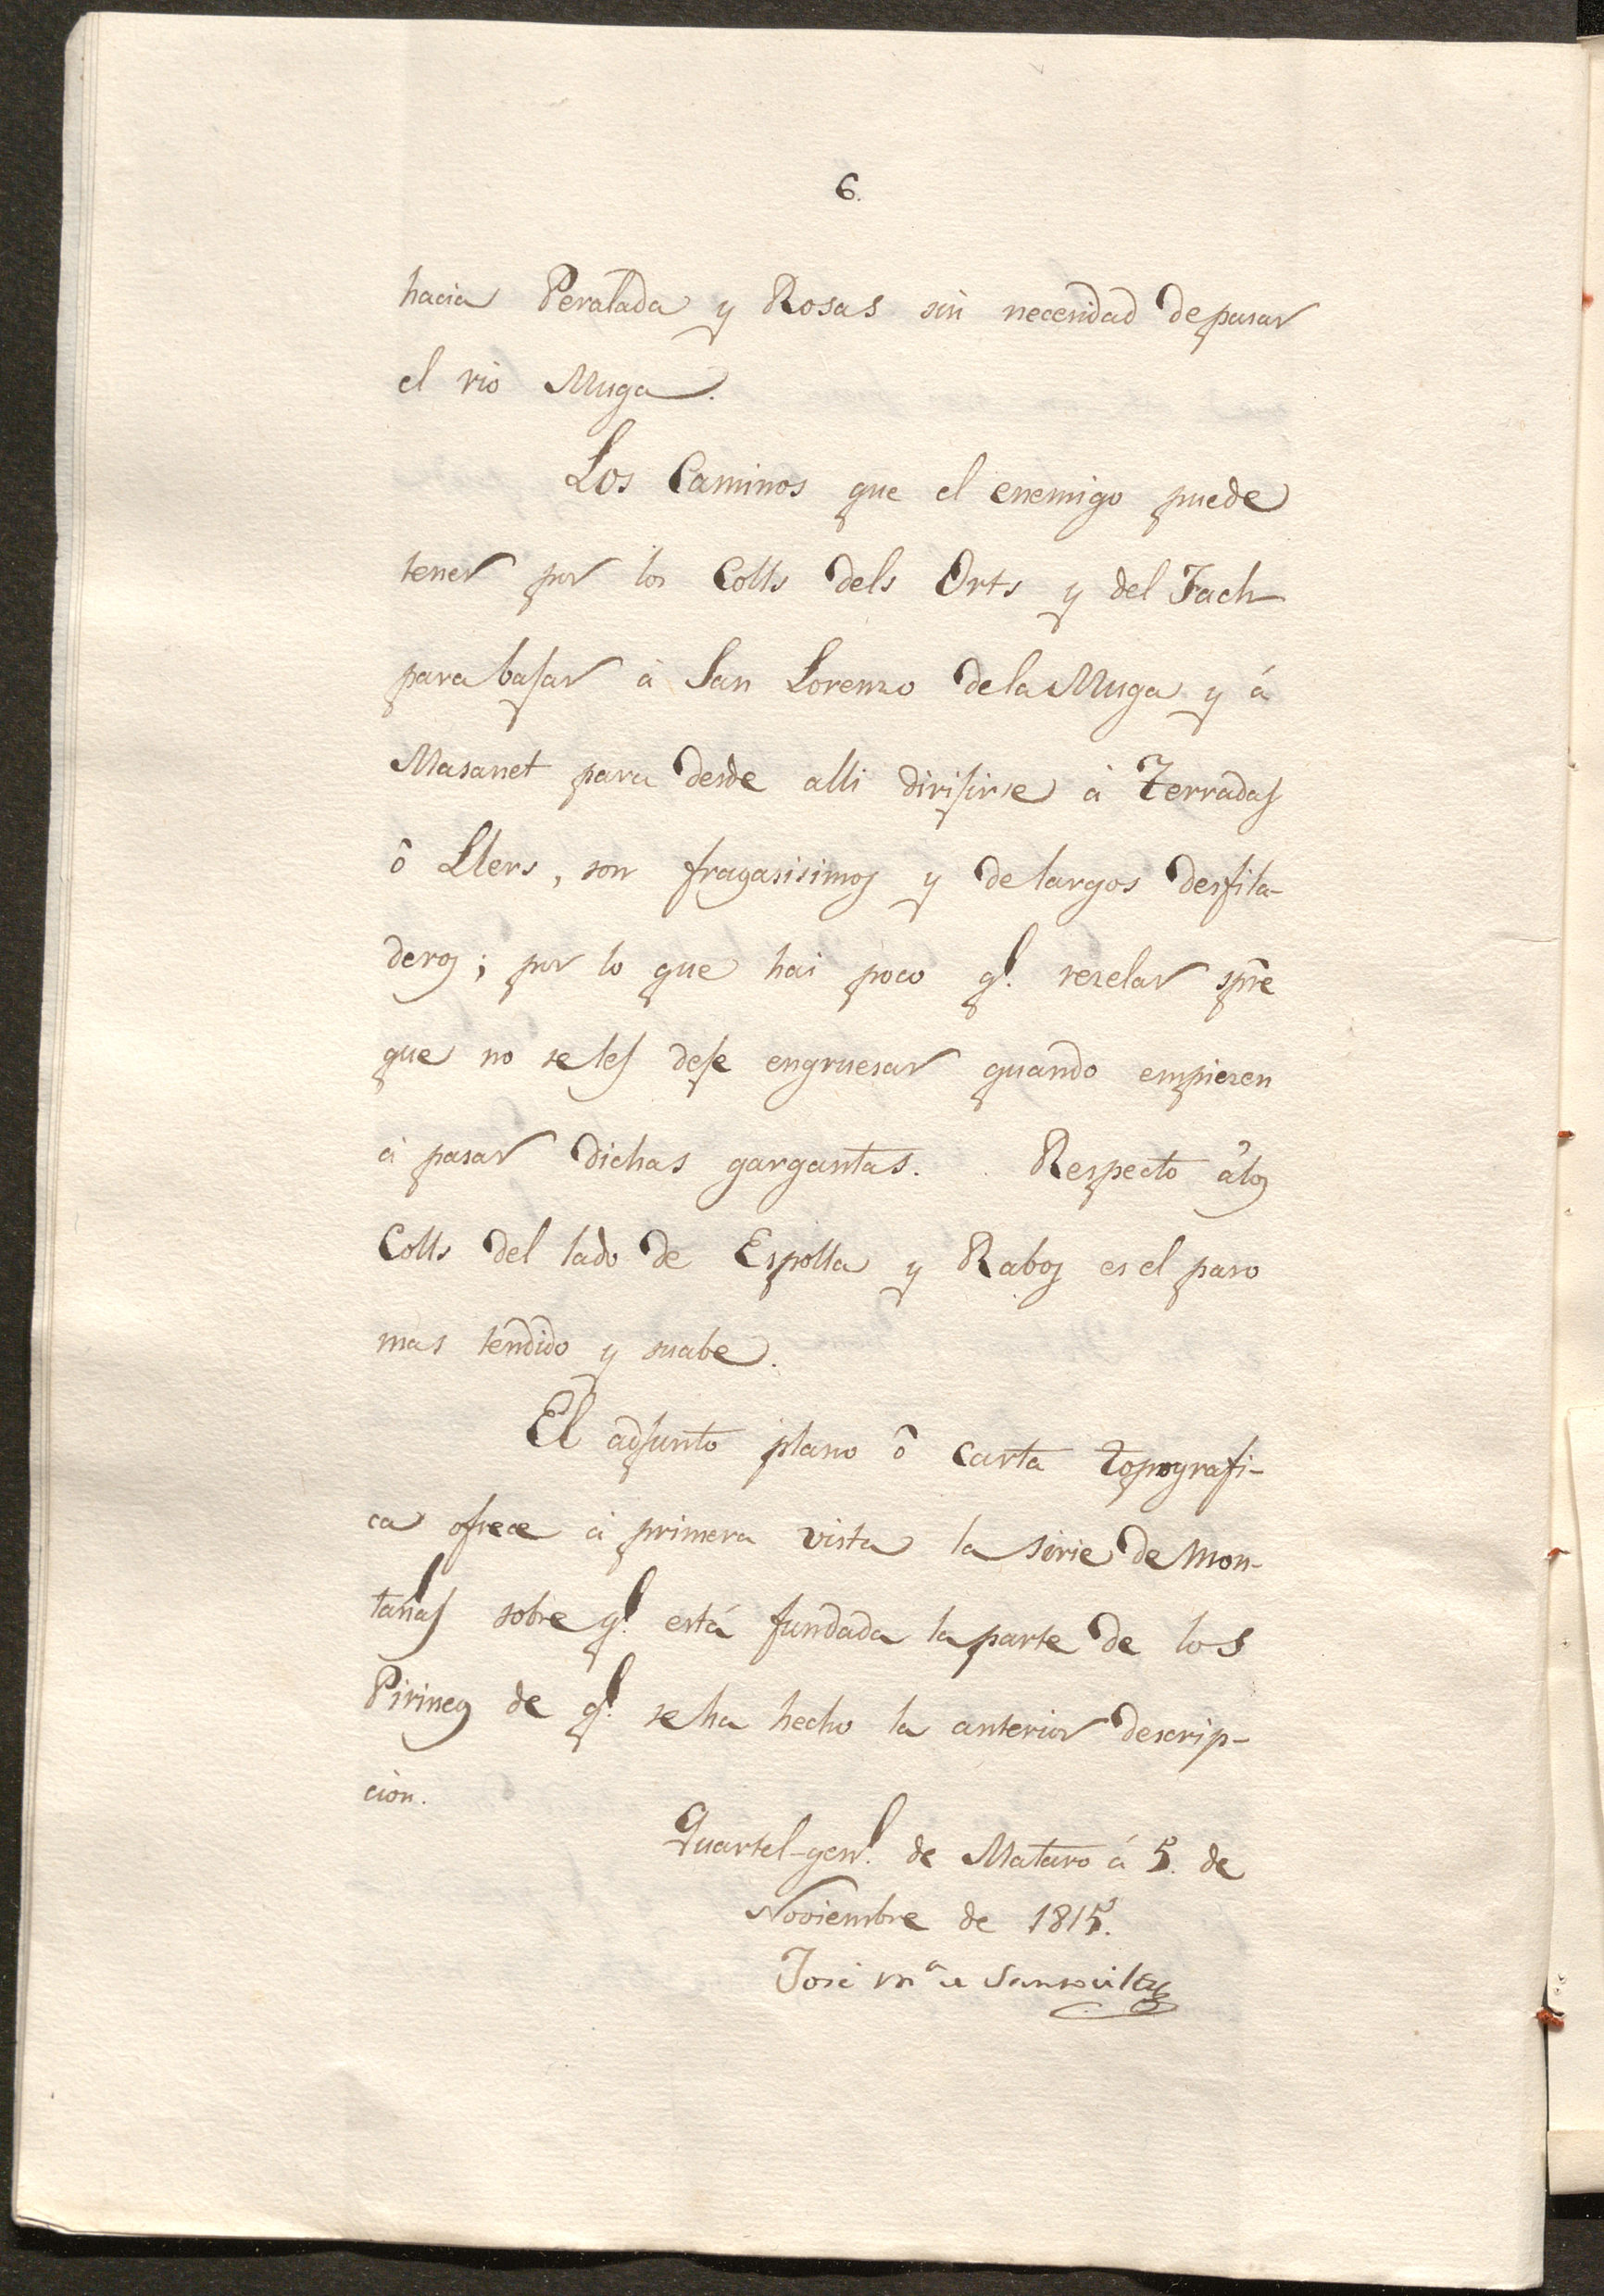 6.
hacia Peralada y Rosas sin necesidad de pasar
el rio Muga.
Los Caminos que el enemigo puede
tener por los Colls dels Orts y del Fach
para bajar à San Lorenzo de la Muga y á
Masanet para desde alli dirijirse à Terradas
ô Llers, son fragasisimos y de largos desfila-
deros; por lo que hai poco q.e rezelar spre
que no se les deje engruesar quando empiezen
à pasar dichas gargantas. Respecto à los
Colls del lado de Espolla y Rabos es el paso
mas tendido y suabe.
El adjunto plano ô carta topografi-
ca ofrece à primera vista la serie de mon-
tañas sobre q.e está fundada la parte de los
Pirineos de q.e se ha hecho la anterior descrip-
cion.
Quartel-gen.l de Mataro á 5. de
Noviembre de 1815.
José M.a